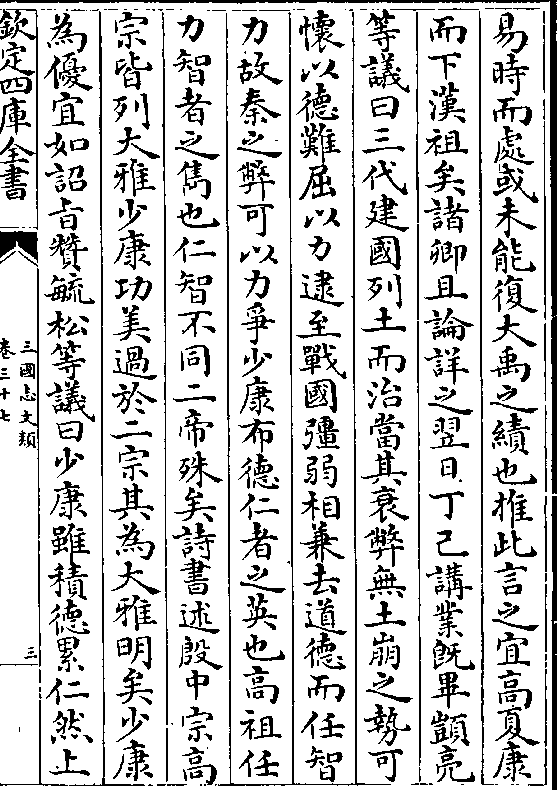 易時而處或未能復大禹之績也推此言之宜高夏康
而下漢祖矣諸卿且論詳之翌日丁已講業旣畢顗亮
等議曰三代建國列土而治當其衰弊無土崩之勢可
懷以德難屈以力逮至戰國彊弱相兼去道德而任智
力故秦之弊可以力爭少康布德仁者之英也高祖任
力智者之雋也仁智不同二帝殊矣詩書述殷中宗高
宗皆列大雅少康功美過於二宗其為大雅明矣少康
為優宜如詔㫖贊毓松等議曰少康雖積德累仁然上
欽定四庫全書
三國志文類
卷三十七
三